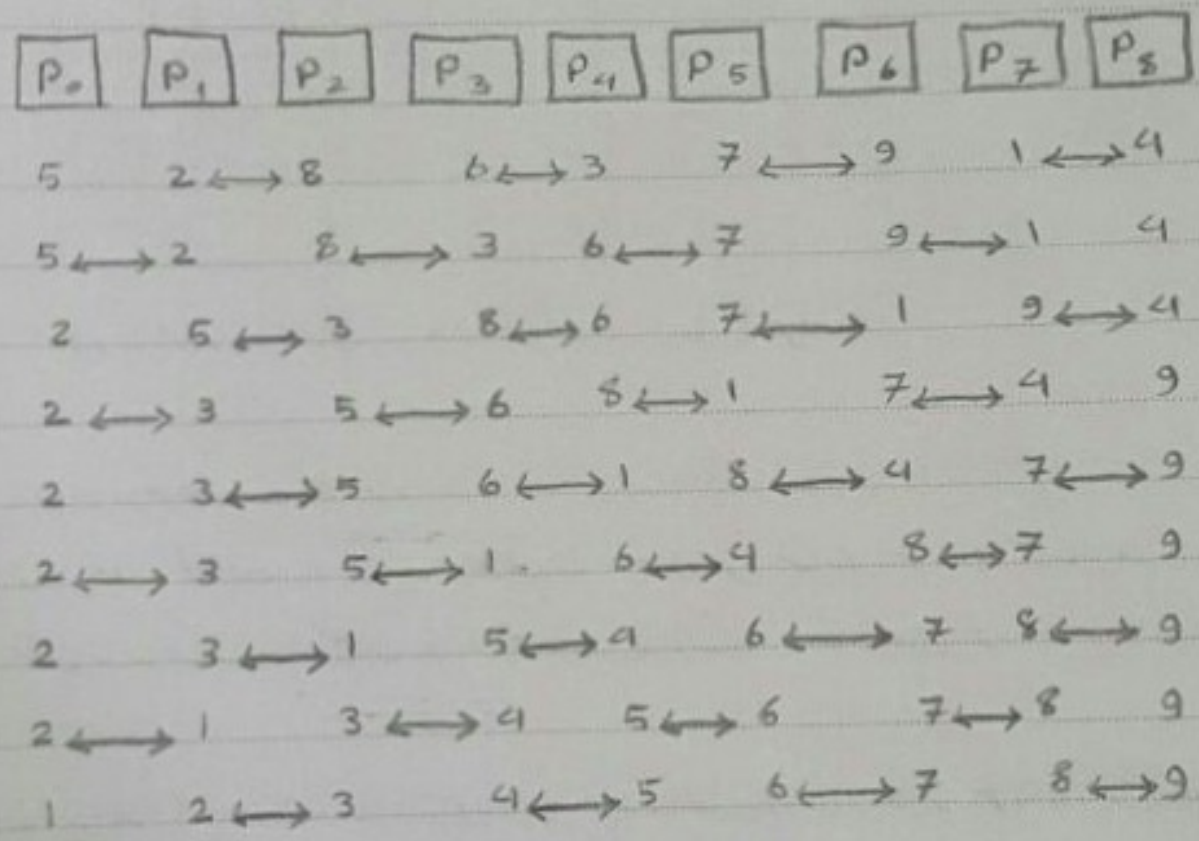 P₀ P₁ P₂ P₃ P₄ P₅ P₆ P₇ P₈
5 2 ↔ 8 6 ↔ 3 7 ↔ 9 1 ↔ 4
5 ↔ 2 8 ↔ 3 6 ↔ 7 9 ↔ 1 4
2 5 ↔ 3 8 ↔ 6 7 ↔ 1 9 ↔ 4
2 ↔ 3 5 ↔ 6 8 ↔ 1 7 ↔ 4 9
2 3 ↔ 5 6 ↔ 1 8 ↔ 4 7 ↔ 9
2 ↔ 3 5 ↔ 1 6 ↔ 4 8 ↔ 7 9
2 3 ↔ 1 5 ↔ 4 6 ↔ 7 8 ↔ 9
2 ↔ 1 3 ↔ 4 5 ↔ 6 7 ↔ 8 9
1 2 ↔ 3 4 ↔ 5 6 ↔ 7 8 ↔ 9